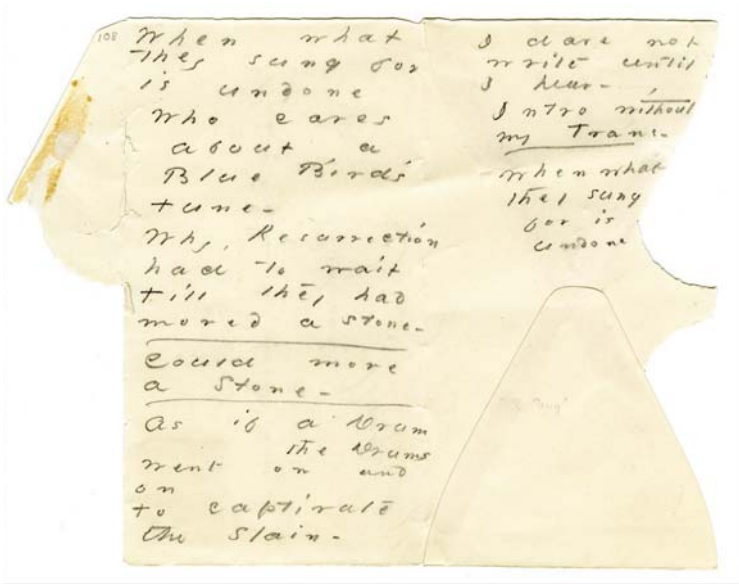 108
When what
they sung for
is undone
Who cares
about a
Blue Bird's
tune -
Why, Resurrection
had to wait
till they had
moved a Stone -
Could move
a Stone -
As if a Drum
the Drums
went on and
on
to captivate
the Slain -
I dare not
write until
I hear -
Intro without
my Trans -
When what
they sung
for is
undone